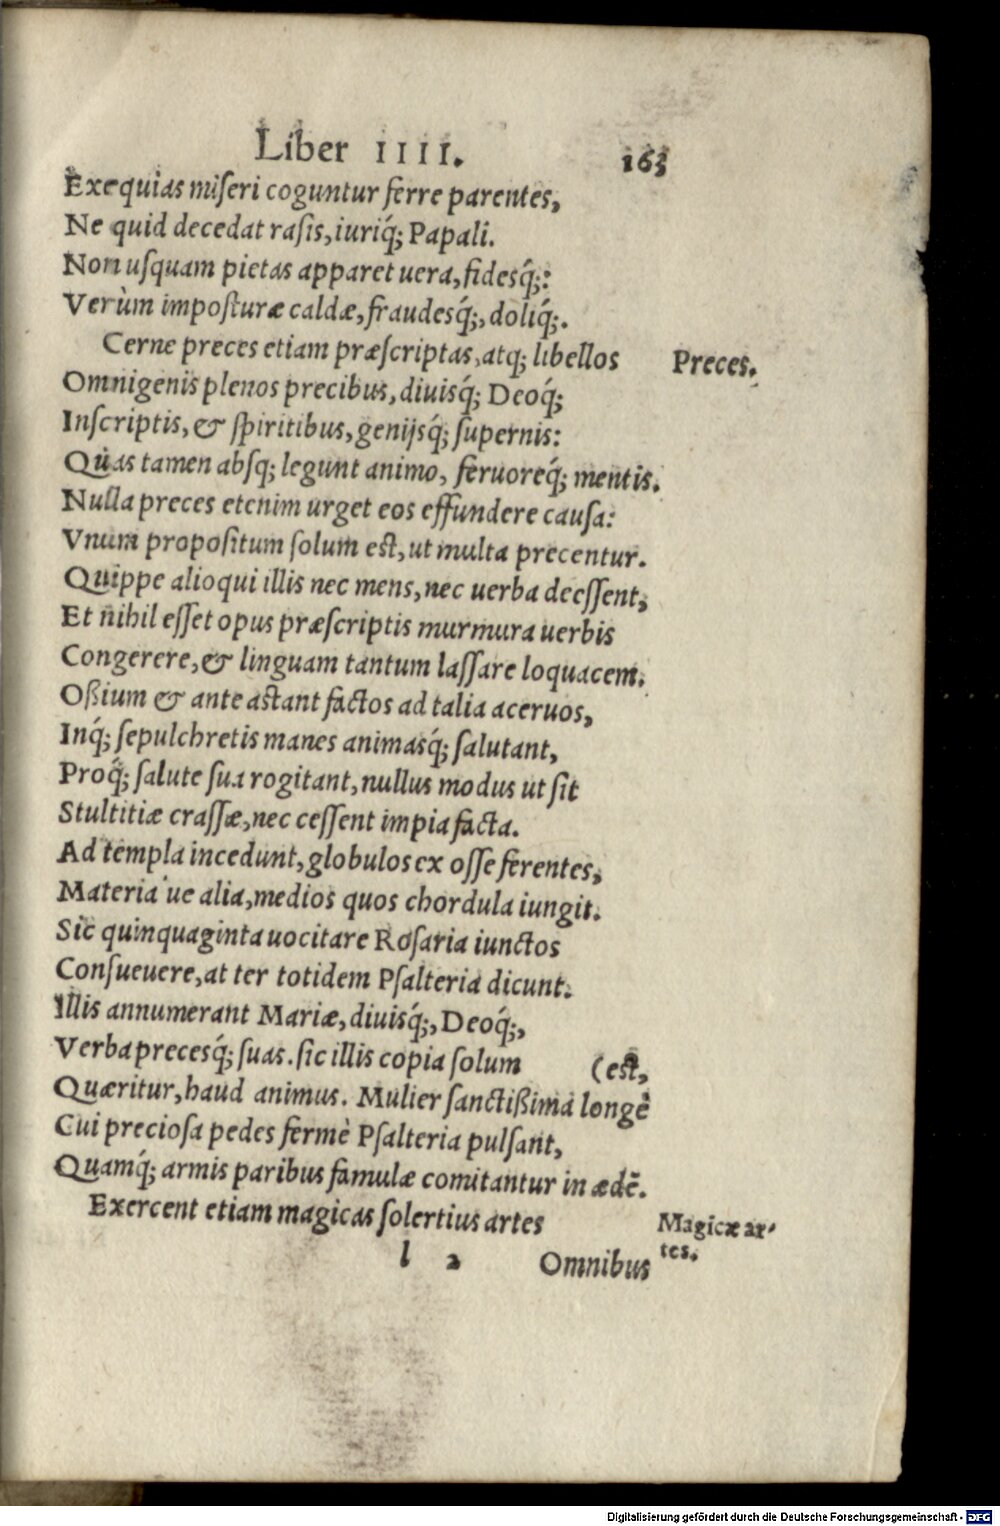 Liber IIII. 163
Exequias miseri coguntur ferre parentes,
Ne quid decedat rasis, iuriq́; Papali.
Non usquam pietas apparet uera, fidesq́;:
Verùm imposturæ caldæ, fraudesq́;, doliq́;.
Cerne preces etiam præscriptas, atq; libellos Preces.
Omnigenis plenos precibus, diuisq́; Deoq́;
Inscriptis, & spiritibus, genijsq́; supernis:
Quas tamen absq; legunt animo, feruoreq́; mentis.
Nulla preces etenim urget eos effundere causa:
Vnum propositum solum est, ut multa precentur.
Quippe alioqui illis nec mens, nec uerba deessent,
Et nihil esset opus præscriptis murmura uerbis
Congerere, & linguam tantum lassare loquacem.
Oßium & ante astant factos ad talia aceruos,
Inq́; sepulchretis manes animasq́; salutant,
Proq́; salute sua rogitant, nullus modus ut sit
Stultitiæ crassæ, nec cessent impia facta.
Ad templa incedunt, globulos ex osse ferentes,
Materia ue alia, medios quos chordula iungit.
Sic quinquaginta uocitare Rosaria iunctos
Consueuere, at ter totidem Psalteria dicunt.
Illis annumerant Mariæ, diuisq́;, Deoq́;,
Verba precesq́; suas. sic illis copia solum (est,
Quæritur, haud animus. Mulier sanctißima longè
Cui preciosa pedes fermè Psalteria pulsant,
Quamq́; armis paribus famulæ comitantur in ædẽ.
Exercent etiam magicas solertius artes Magicæ ar-
tes.
l 2 Omnibus
Digitalisierung gefördert durch die Deutsche Forschungsgemeinschaft - DFG